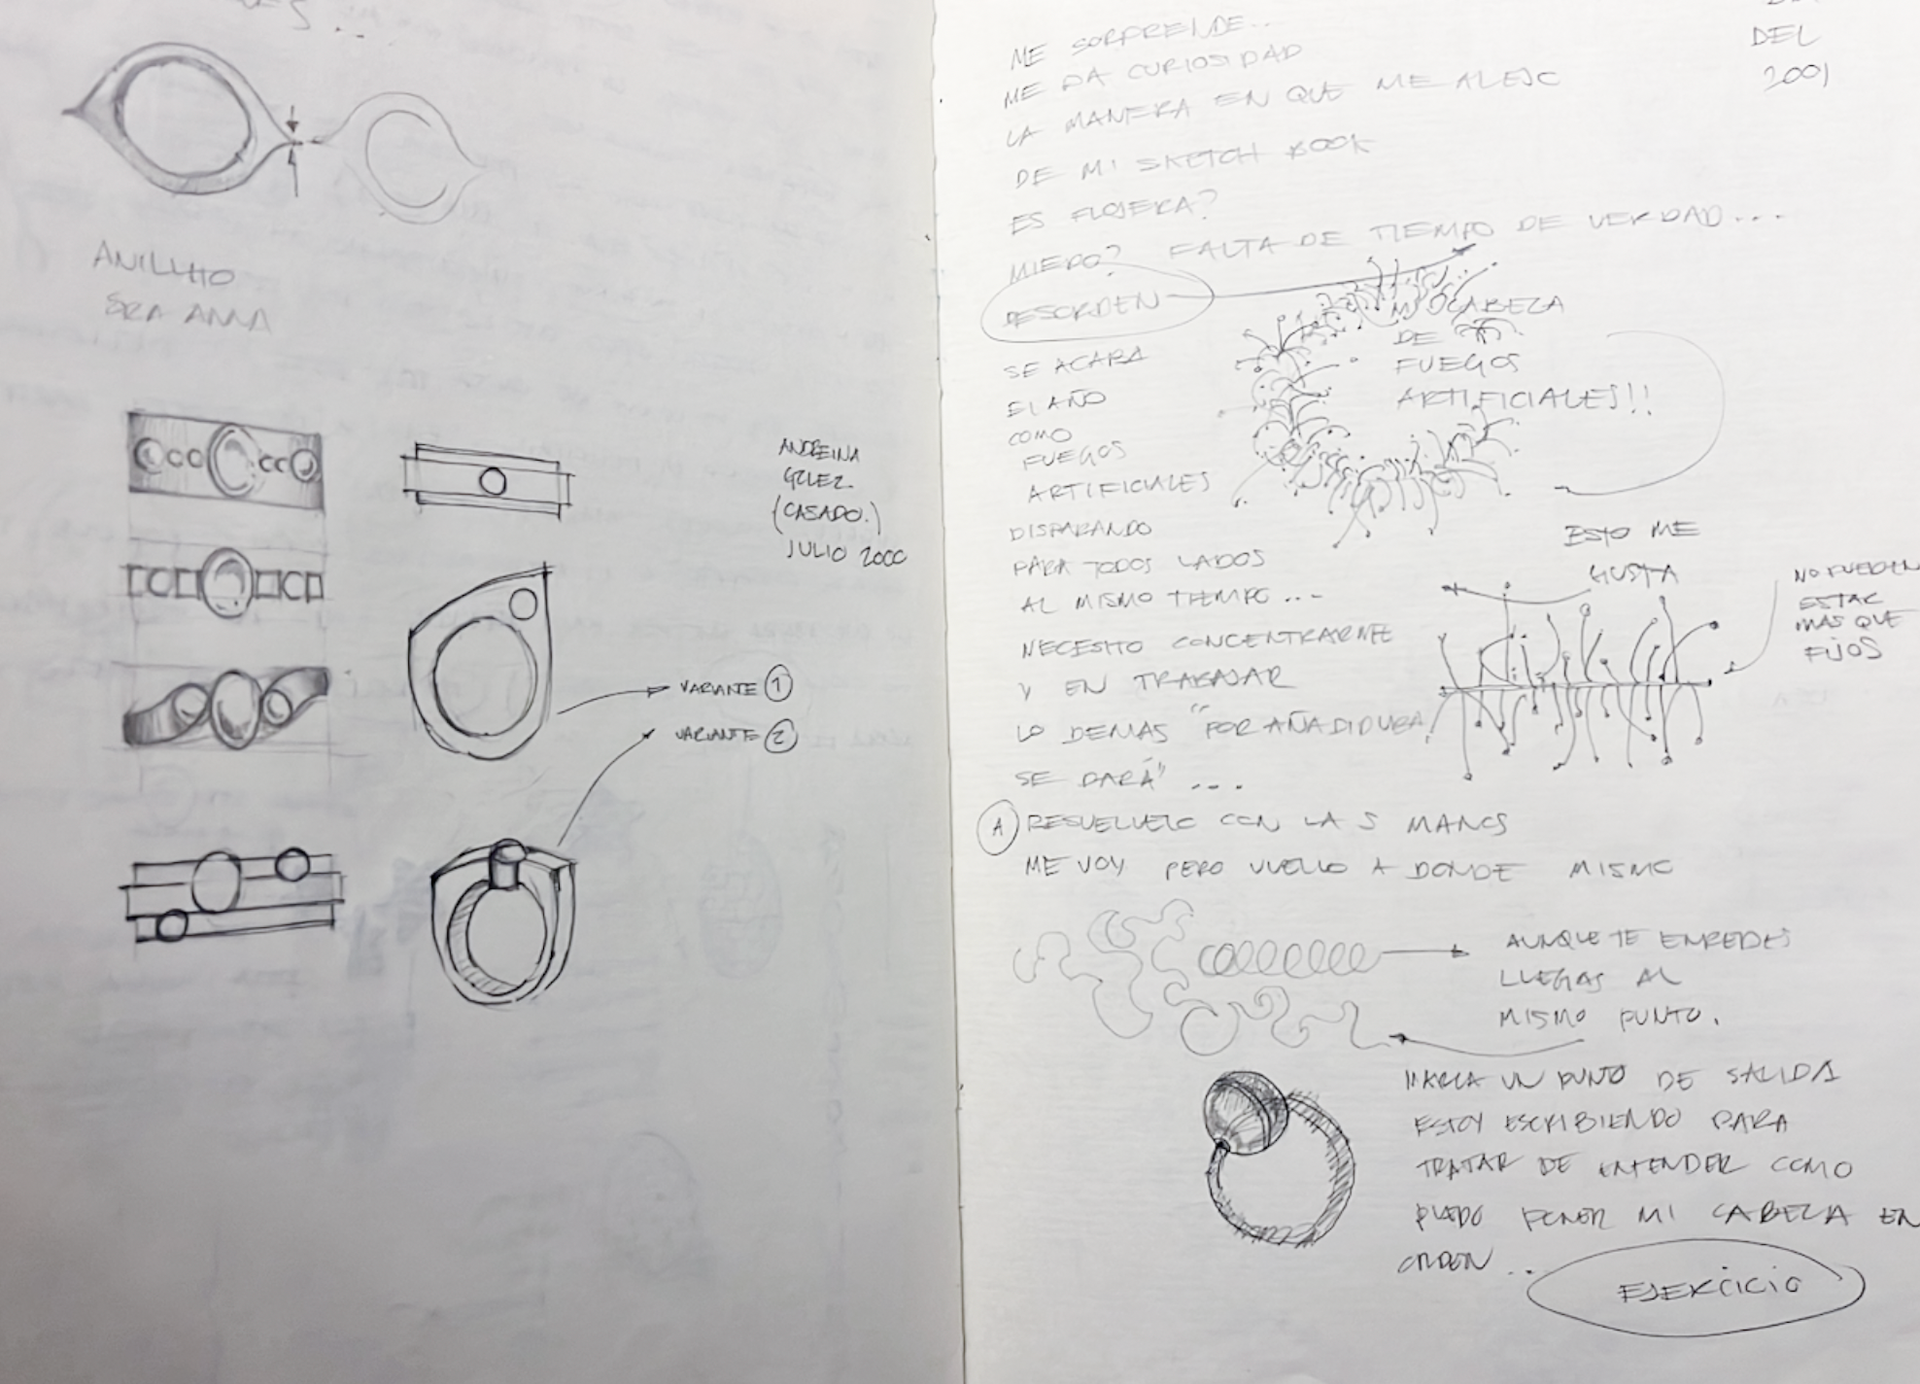 ANILLHO
SRA ANA
ANDREINA
GLEZ.
(CASADO.)
JULIO 2000
VARIANTE 1
VARIANTE 2
DEL
2001
ME SORPRENDE..
ME DA CURIOSIDAD
LA MANERA EN QUE ME ALEJO
DE MI SKETCH BOOK
ES FLOJERA?
MIEDO? FALTA DE TIEMPO DE VERDAD...
DESORDEN
MI CABEZA
DE
FUEGOS
ARTIFICIALES!!
SE ACABA
EL AÑO
COMO
FUEGOS
ARTIFICIALES
DISPARANDO
PARA TODOS LADOS
AL MISMO TIEMPO...
ESTO ME
GUSTA
NO PUEDEN
ESTAR
MAS QUE
FIJOS
NECESITO CONCENTRARME
Y EN TRABAJAR
LO DEMAS "POR AÑADIDURA
SE DARÁ" ...
A RESUELVELO CON LAS MANOS
ME VOY PERO VUELVO A DONDE MISMO
AUNQUE TE ENREDES
LLEGAS AL
MISMO PUNTO.
MARCA UN PUNTO DE SALIDA
ESTOY ESCRIBIENDO PARA
TRATAR DE ENTENDER COMO
PUEDO PONER MI CABEZA EN
ORDEN ...
EJERCICIO